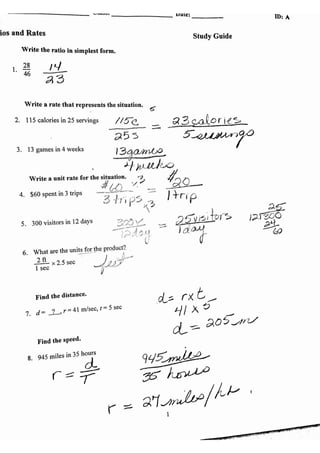 ID: A
ios and Rates
Study Guide
Write the ratio in simplest form.
1. 28/46 14/23
Write a rate that represents the situation. 5
2. 115 calories in 25 servings 115c/25s = 23 calories/5 servings
3. 13 games in 4 weeks 13 games/4 weeks
Write a unit rate for the situation.
4. $60 spent in 3 trips $60/3 trips ÷3 ÷3 = $20/1 trip
5. 300 visitors in 12 days 300v/12day = 25 visitors/1 day
25
12)300
24
60
6. What are the units for the product?
2 ft/1 sec × 2.5 sec feet
Find the distance.
7. d = ? , r = 41 m/sec, t = 5 sec
d = r x t
41 x 5
d = 205 m
Find the speed.
8. 945 miles in 35 hours
r = d/T 945 miles/35 hours
r = 27 miles/hr.
1